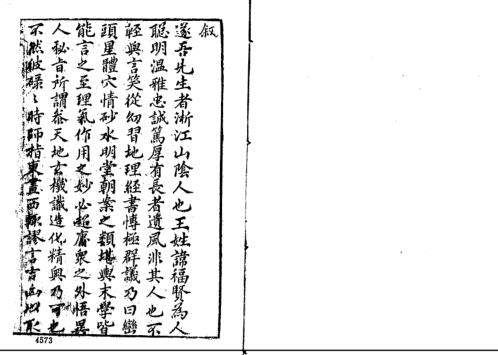 叙
遂吾先生者浙江山陰人也王姓諱福賢為人
聰明温雅忠誠篤厚有長者遺風非其人也不
輕與言笑從幼習地理經書博極群議乃曰巒
頭星體穴情砂水明堂朝案之類堪輿末學皆
能言之至理氣作用之妙必超庸衆之外悟異
人秘旨所謂叅天地玄機識造化精奥乃可也
不然彼碌々時師指東畫西輙謬言吉凶以取
4573